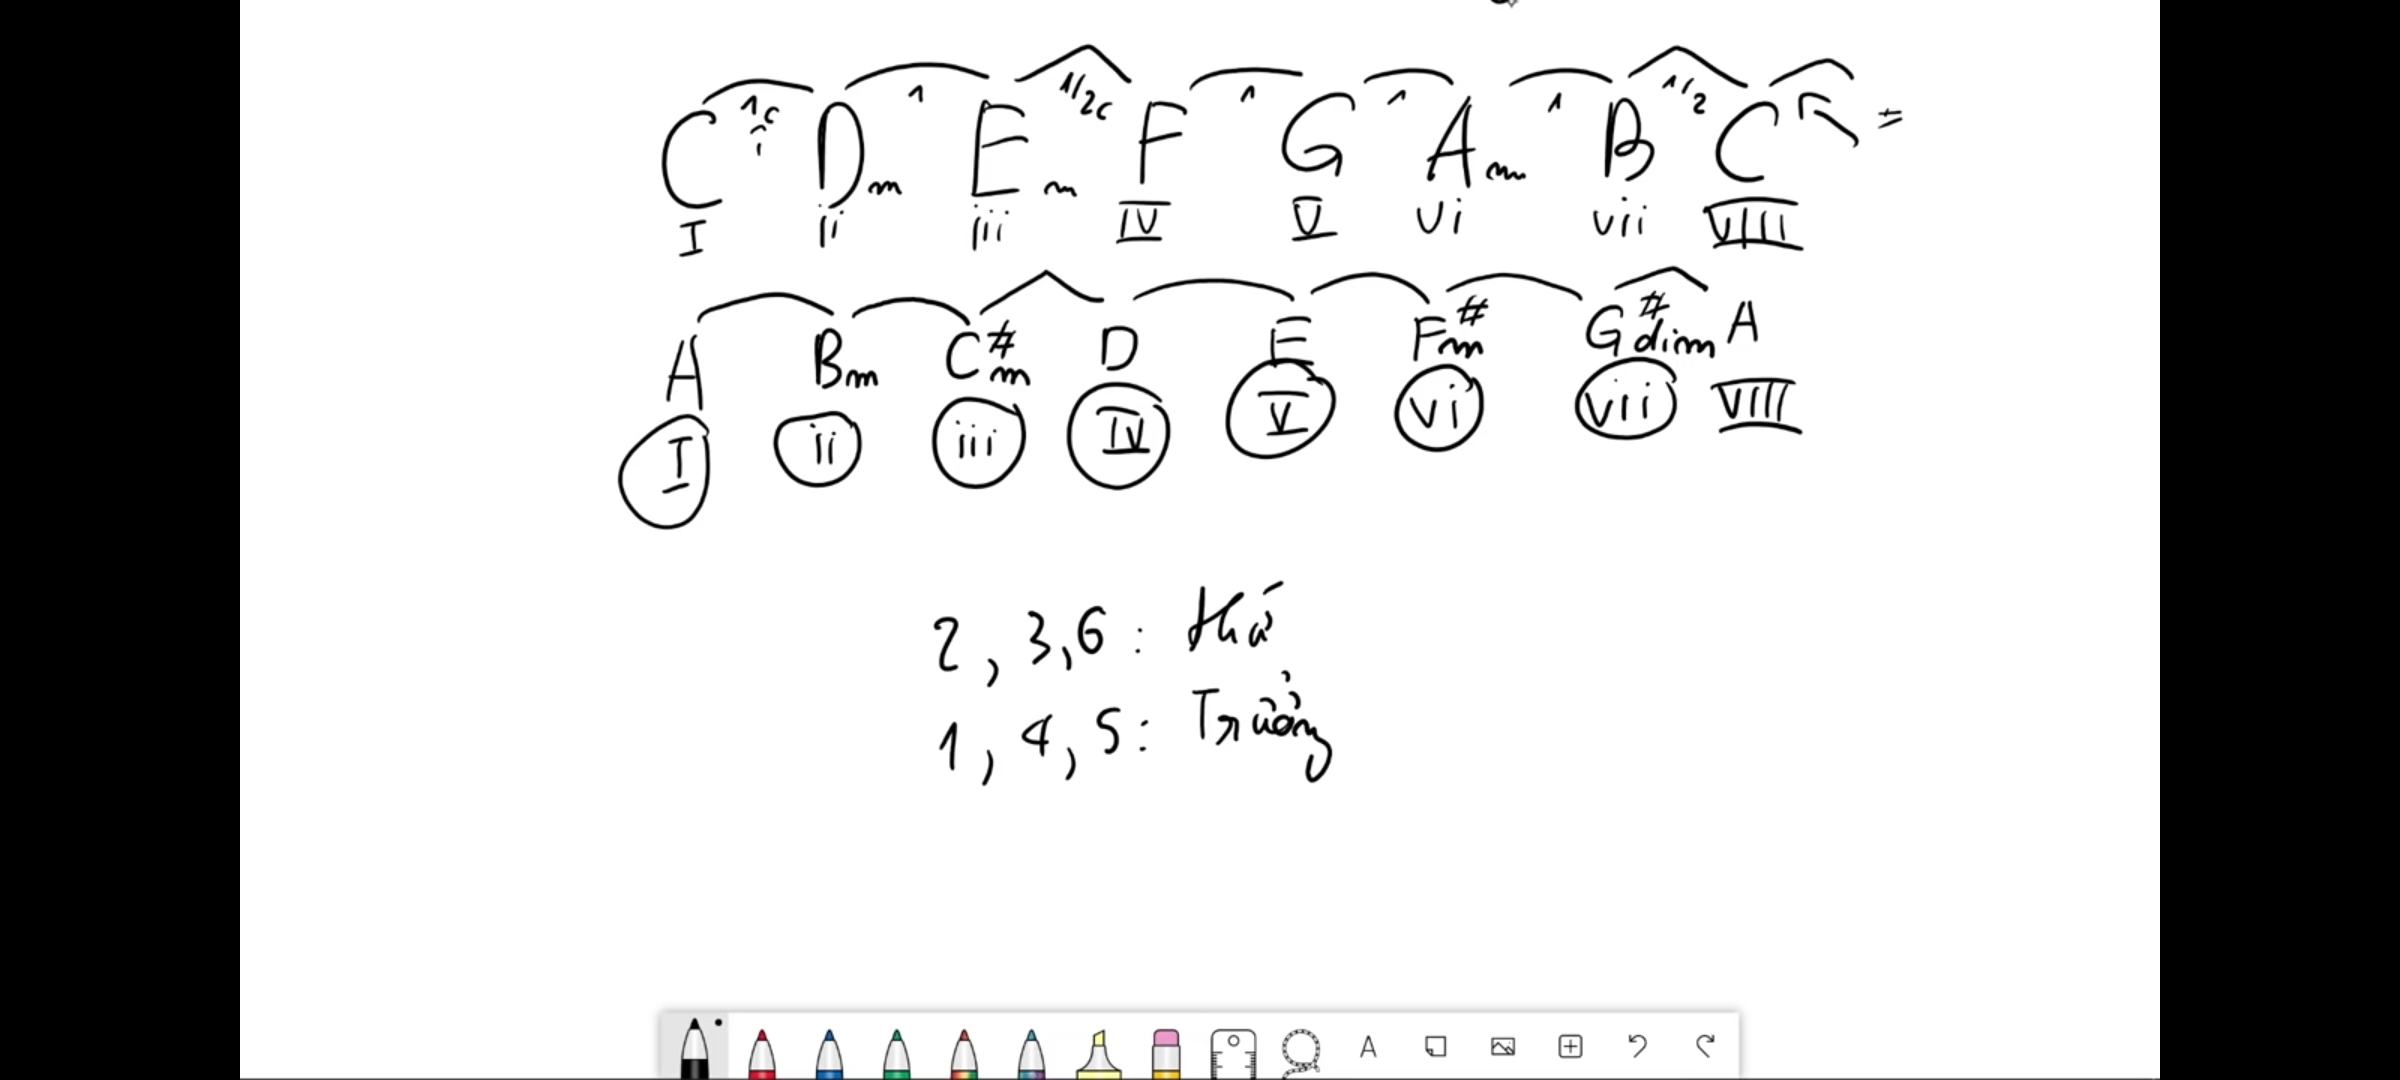 1c 1 1/2c 1 1 1 1/2
C Dm Em F G Am B C
I ii iii IV V vi vii VIII
A Bm C#m D E F#m G#dim A
I ii iii IV V vi vii VIII
2, 3, 6: thứ
1, 4, 5: Trưởng
A